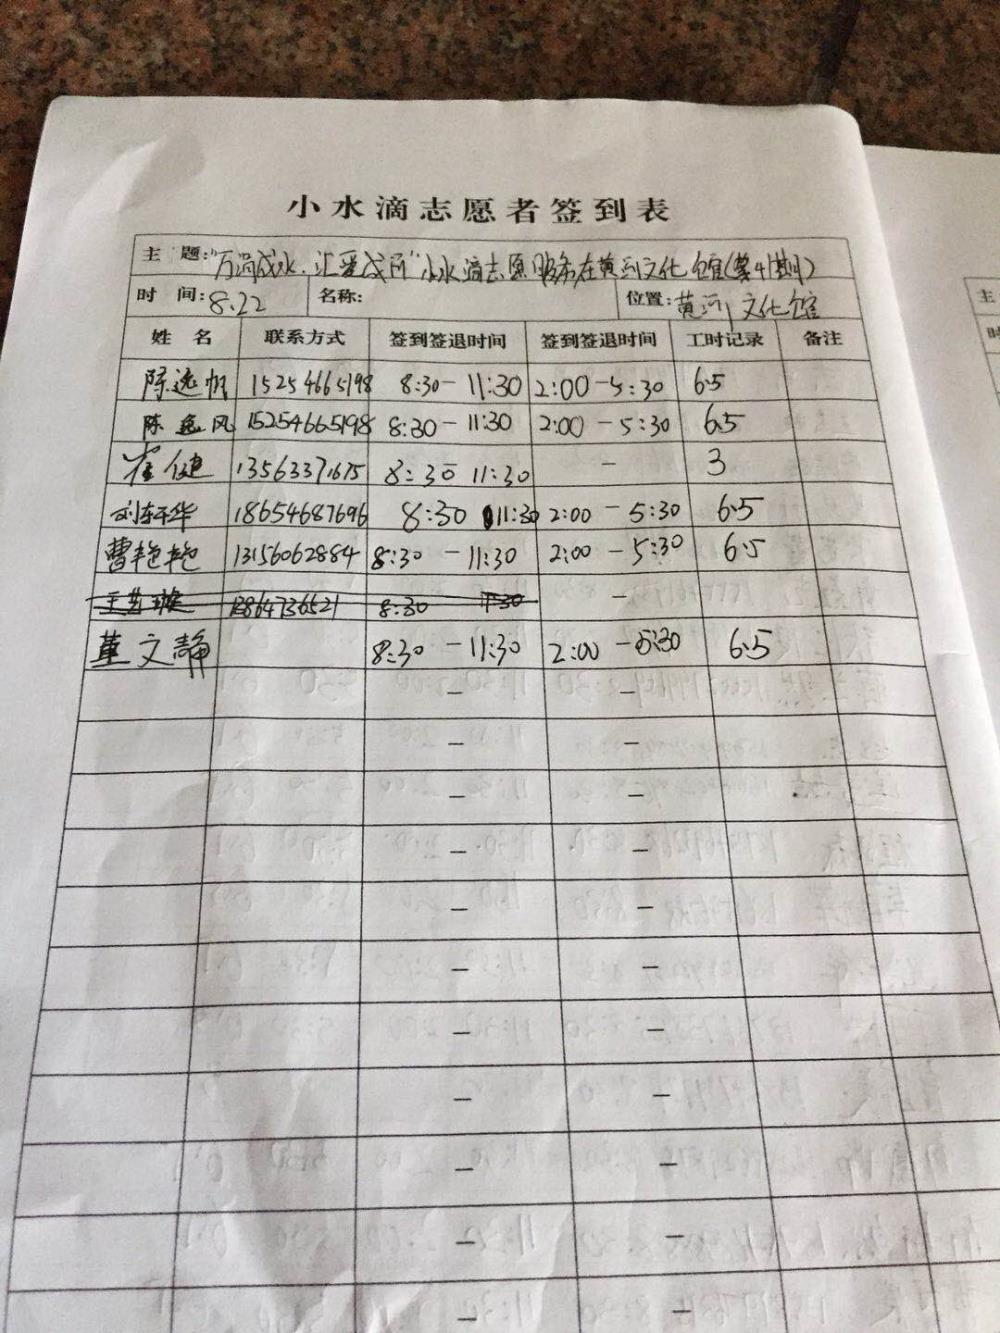 小水滴志愿者签到表
主 题:"万涓成水.汇爱成河"小水滴志愿服务在黄河文化馆(第41期)
时 间:8.22 名称: 位置:黄河文化馆
姓 名 联系方式 签到签退时间 签到签退时间 工时记录 备注
陈逸帆 15254665198 8:30-11:30 2:00-5:30 6.5
陈逸风 15254665198 8:30-11:30 2:00-5:30 6.5
崔健 13563371675 8:30 11:30 - 3
刘东华 18654687696 8:30 11:30 2:00-5:30 6.5
曹艳艳 13156062884 8:30-11:30 2:00-5:30 6.5
13864736521 8:30 11:30 -
董文静 8:30-11:30 2:00-5:30 6.5
- -
- -
- -
- -
- -
- -
- -
- -
- -
- -
- -
主
时